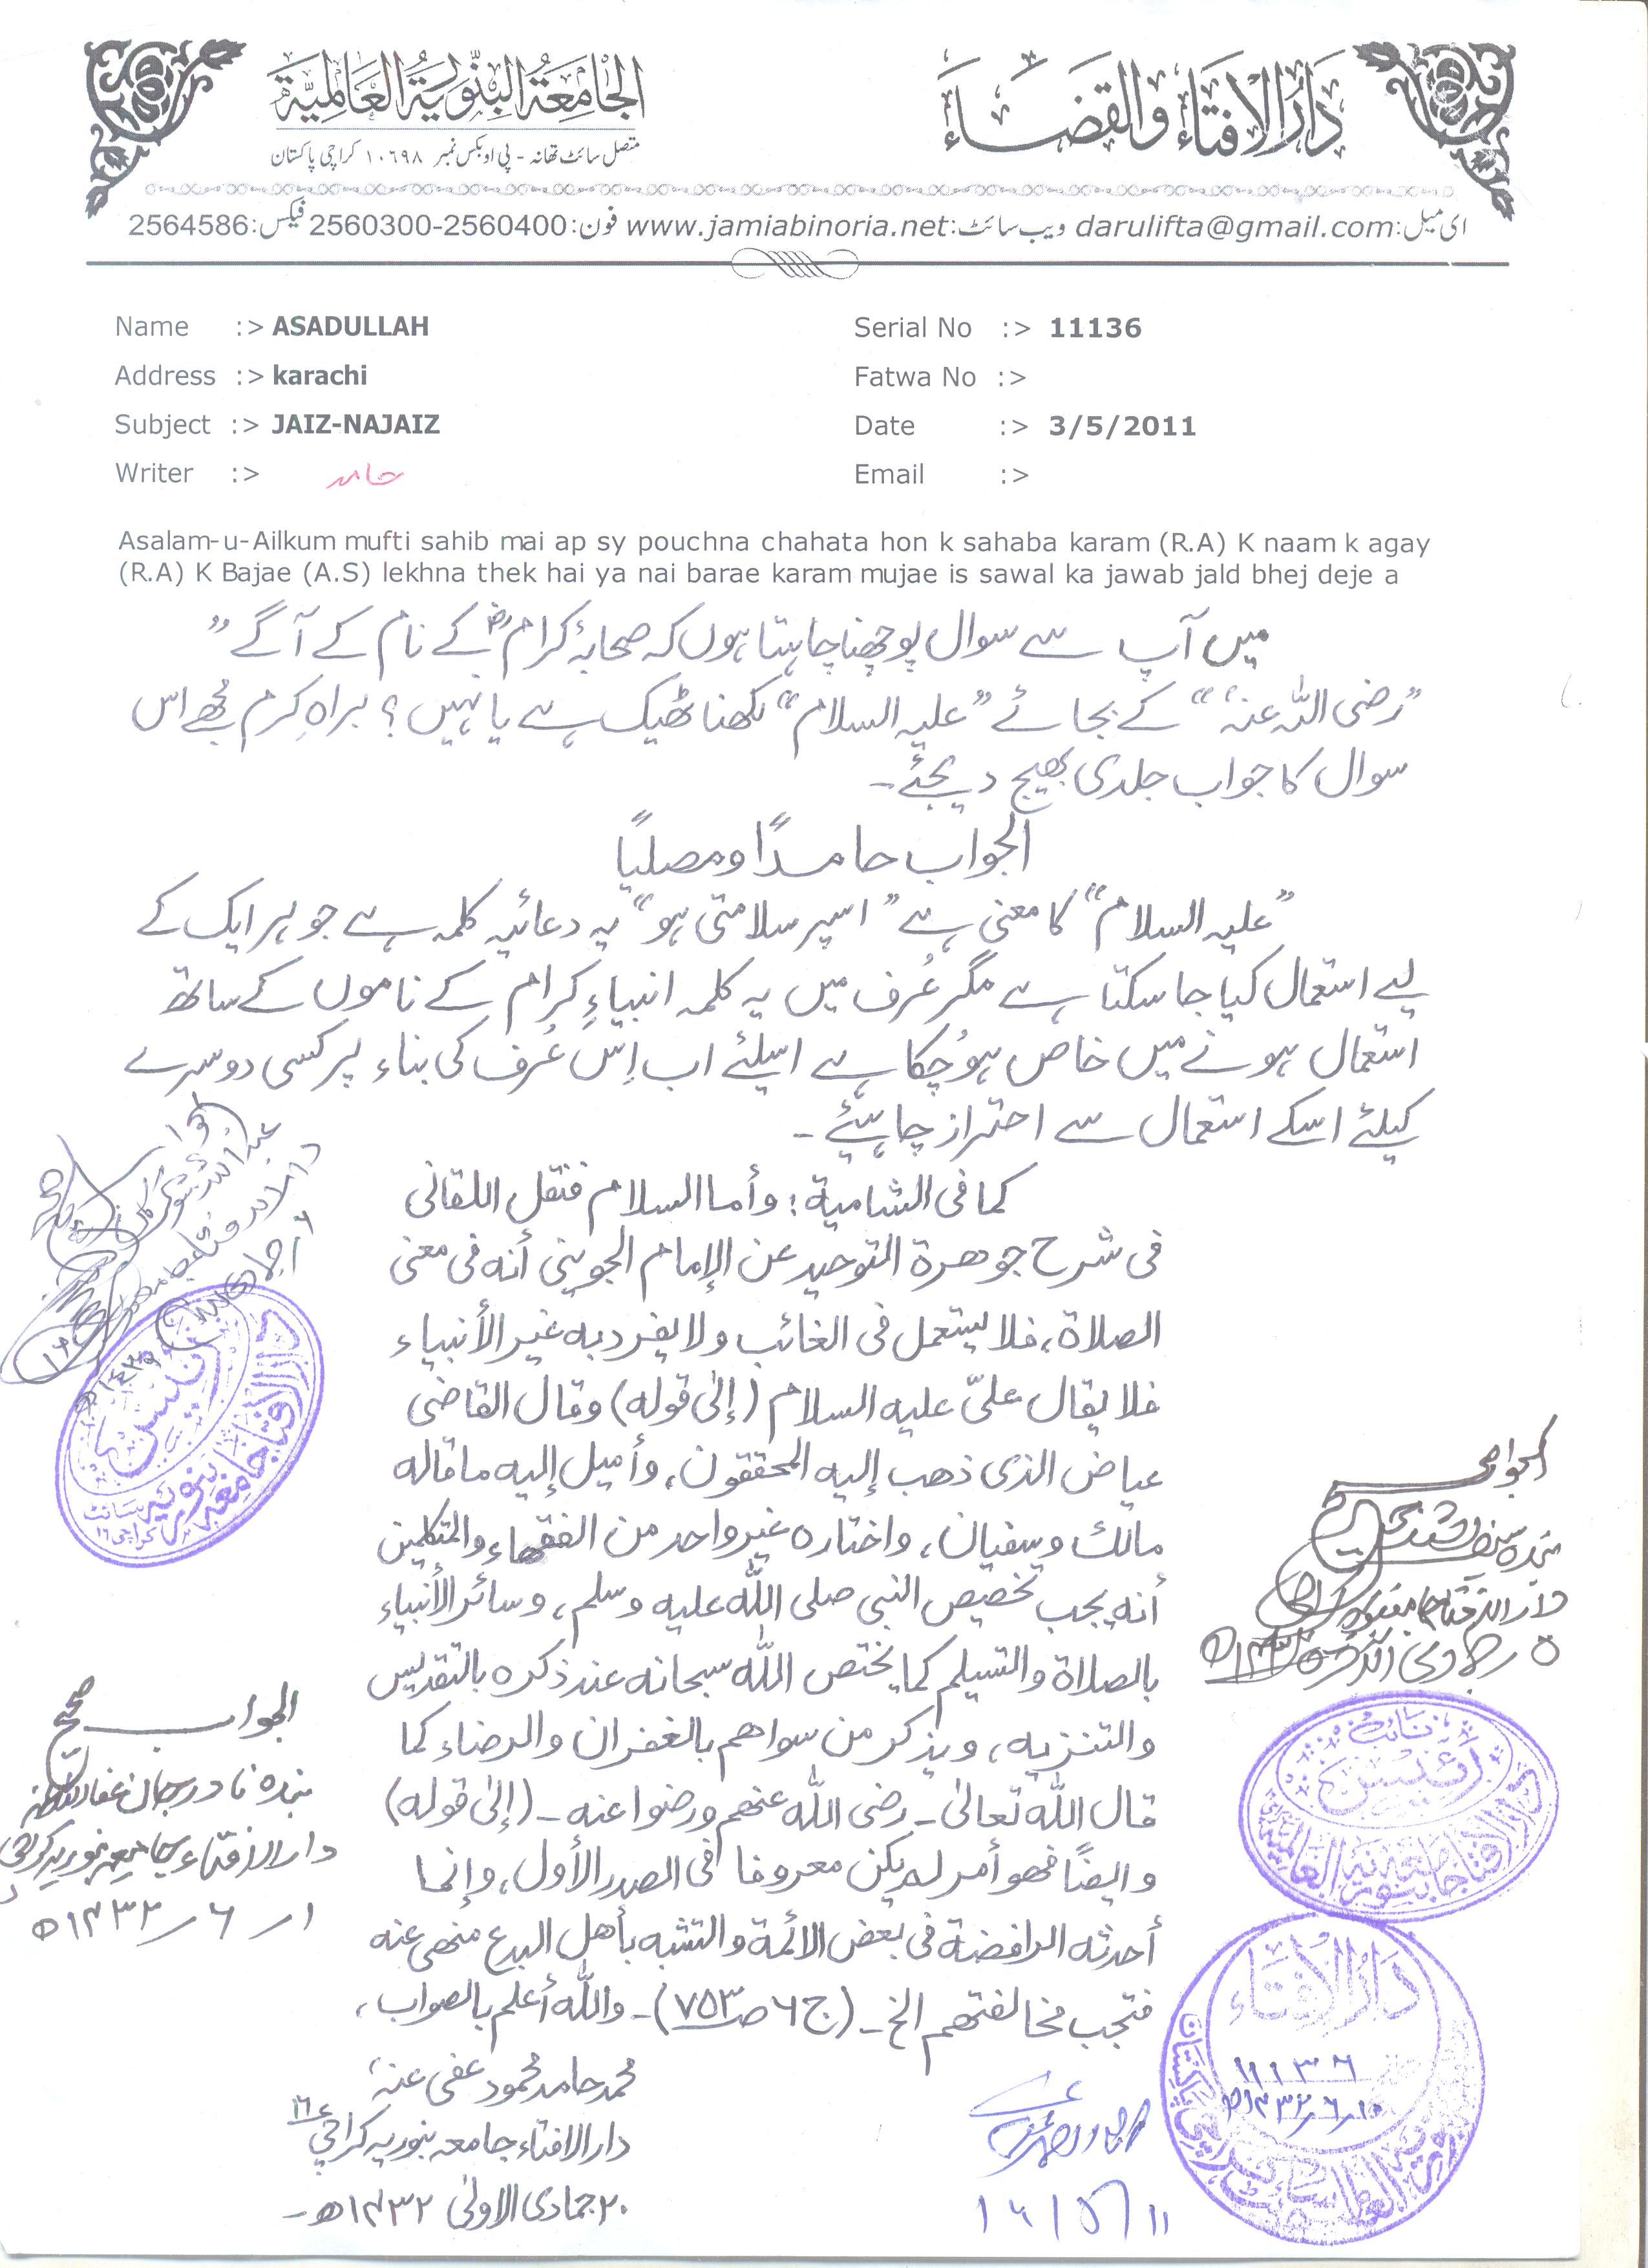 دَارُ الْاِفْتَاء وَالقَضَاء
الجَامِعَةُ البِنّورِيَةُ العَالَمِيَّة
متصل سائٹ تھانہ - پی او بکس نمبر ۱۰٦۹۸ کراچی پاکستان
ای میل: darulifta@gmail.com ویب سائٹ: www.jamiabinoria.net فون: 2560300-2560400 فیکس: 2564586
Name :> ASADULLAH Serial No :> 11136
Address :> karachi Fatwa No :>
Subject :> JAIZ-NAJAIZ Date :> 3/5/2011
Writer :> حامد Email :>
Asalam-u-Ailkum mufti sahib mai ap sy pouchna chahata hon k sahaba karam (R.A) K naam k agay
(R.A) K Bajae (A.S) lekhna thek hai ya nai barae karam mujae is sawal ka jawab jald bhej deje a
میں آپ سے سوال پوچھنا چاہتا ہوں کہ صحابۂ کرامؓ کے نام کے آگے "
"رضی اللہ عنہٗ" کے بجائے "علیہ السلام" لکھنا ٹھیک ہے یا نہیں؟ براہِ کرم مجھے اس
سوال کا جواب جلدی بھیج دیجئے۔
الجواب حامدًا ومصلیًا
"علیہ السلام" کا معنی ہے "اسپر سلامتی ہو" یہ دعائیہ کلمہ ہے جو ہر ایک کے
لیے استعمال کیا جا سکتا ہے مگر عُرف میں یہ کلمہ انبیاءِ کرام کے ناموں کے ساتھ
استعمال ہونے میں خاص ہو چُکا ہے اسلئے اب اِس عُرف کی بناء پر کسی دوسرے
کیلئے اسکے استعمال سے احتراز چاہئیے۔
کما فی الشامیة: وأما السلام فنقل اللقانی
فی شرح جوهرة التوحید عن الإمام الجوینی أنه فی معنی
الصلاة، فلا یستعمل فی الغائب ولا یفرد به غیر الأنبیاء
فلا یقال علیّ علیه السلام (إلیٰ قوله) وقال القاضی
عیاض الذی ذهب إلیه المحققون، وأمیل إلیه ما قاله
مالك وسفیان، واختاره غیر واحد من الفقهاء والمتکلمین
أنه یجب تخصیص النبی صلی اللّٰه علیه وسلم، وسائر الأنبیاء
بالصلاة والتسلیم کما یختص اللّٰه سبحانه عند ذکره بالتقدیس
والتنزیه، ویذکر من سواهم بالغفران والرضاء کما
قال اللّٰه تعالیٰ۔ رضی اللّٰه عنهم ورضوا عنه۔ (إلیٰ قوله)
وایضًا فهو أمر لم یکن معروفا فی الصدر الأول، وإنما
أحدثه الرافضة فی بعض الائمة والتشبه بأهل البدع منهی عنه
فتجب مخالفتهم الخ۔ (ج ٦ ص ۷۵۳)۔ واللّٰه أعلم بالصواب،
محمد حامد محمود عفی عنہٗ
دار الافتاء جامعہ بنوریہ کراچی ۱٦
۲۰ جمادی الاولیٰ ۱۴۳۲ھ۔
الجواب صحیح
بندہ نادر جان عفا اللہ عنہ
دار الافتاء جامعہ بنوریہ کراچی
۱ر ٦ر ۱۴۳۲ھ
الجواب صحیح
دار الافتاء جامعہ بنوریہ
نائب
رئیس
دار الافتاء جامعہ بنوریہ العالمیہ
رئیس
دار الافتاء جامعہ بنوریہ سائٹ کراچی ۱٦
دَارُ الْاِفْتَاء
۱۱۱۳٦
۱۴۳۲ھ
۱٦/۵/۱۱